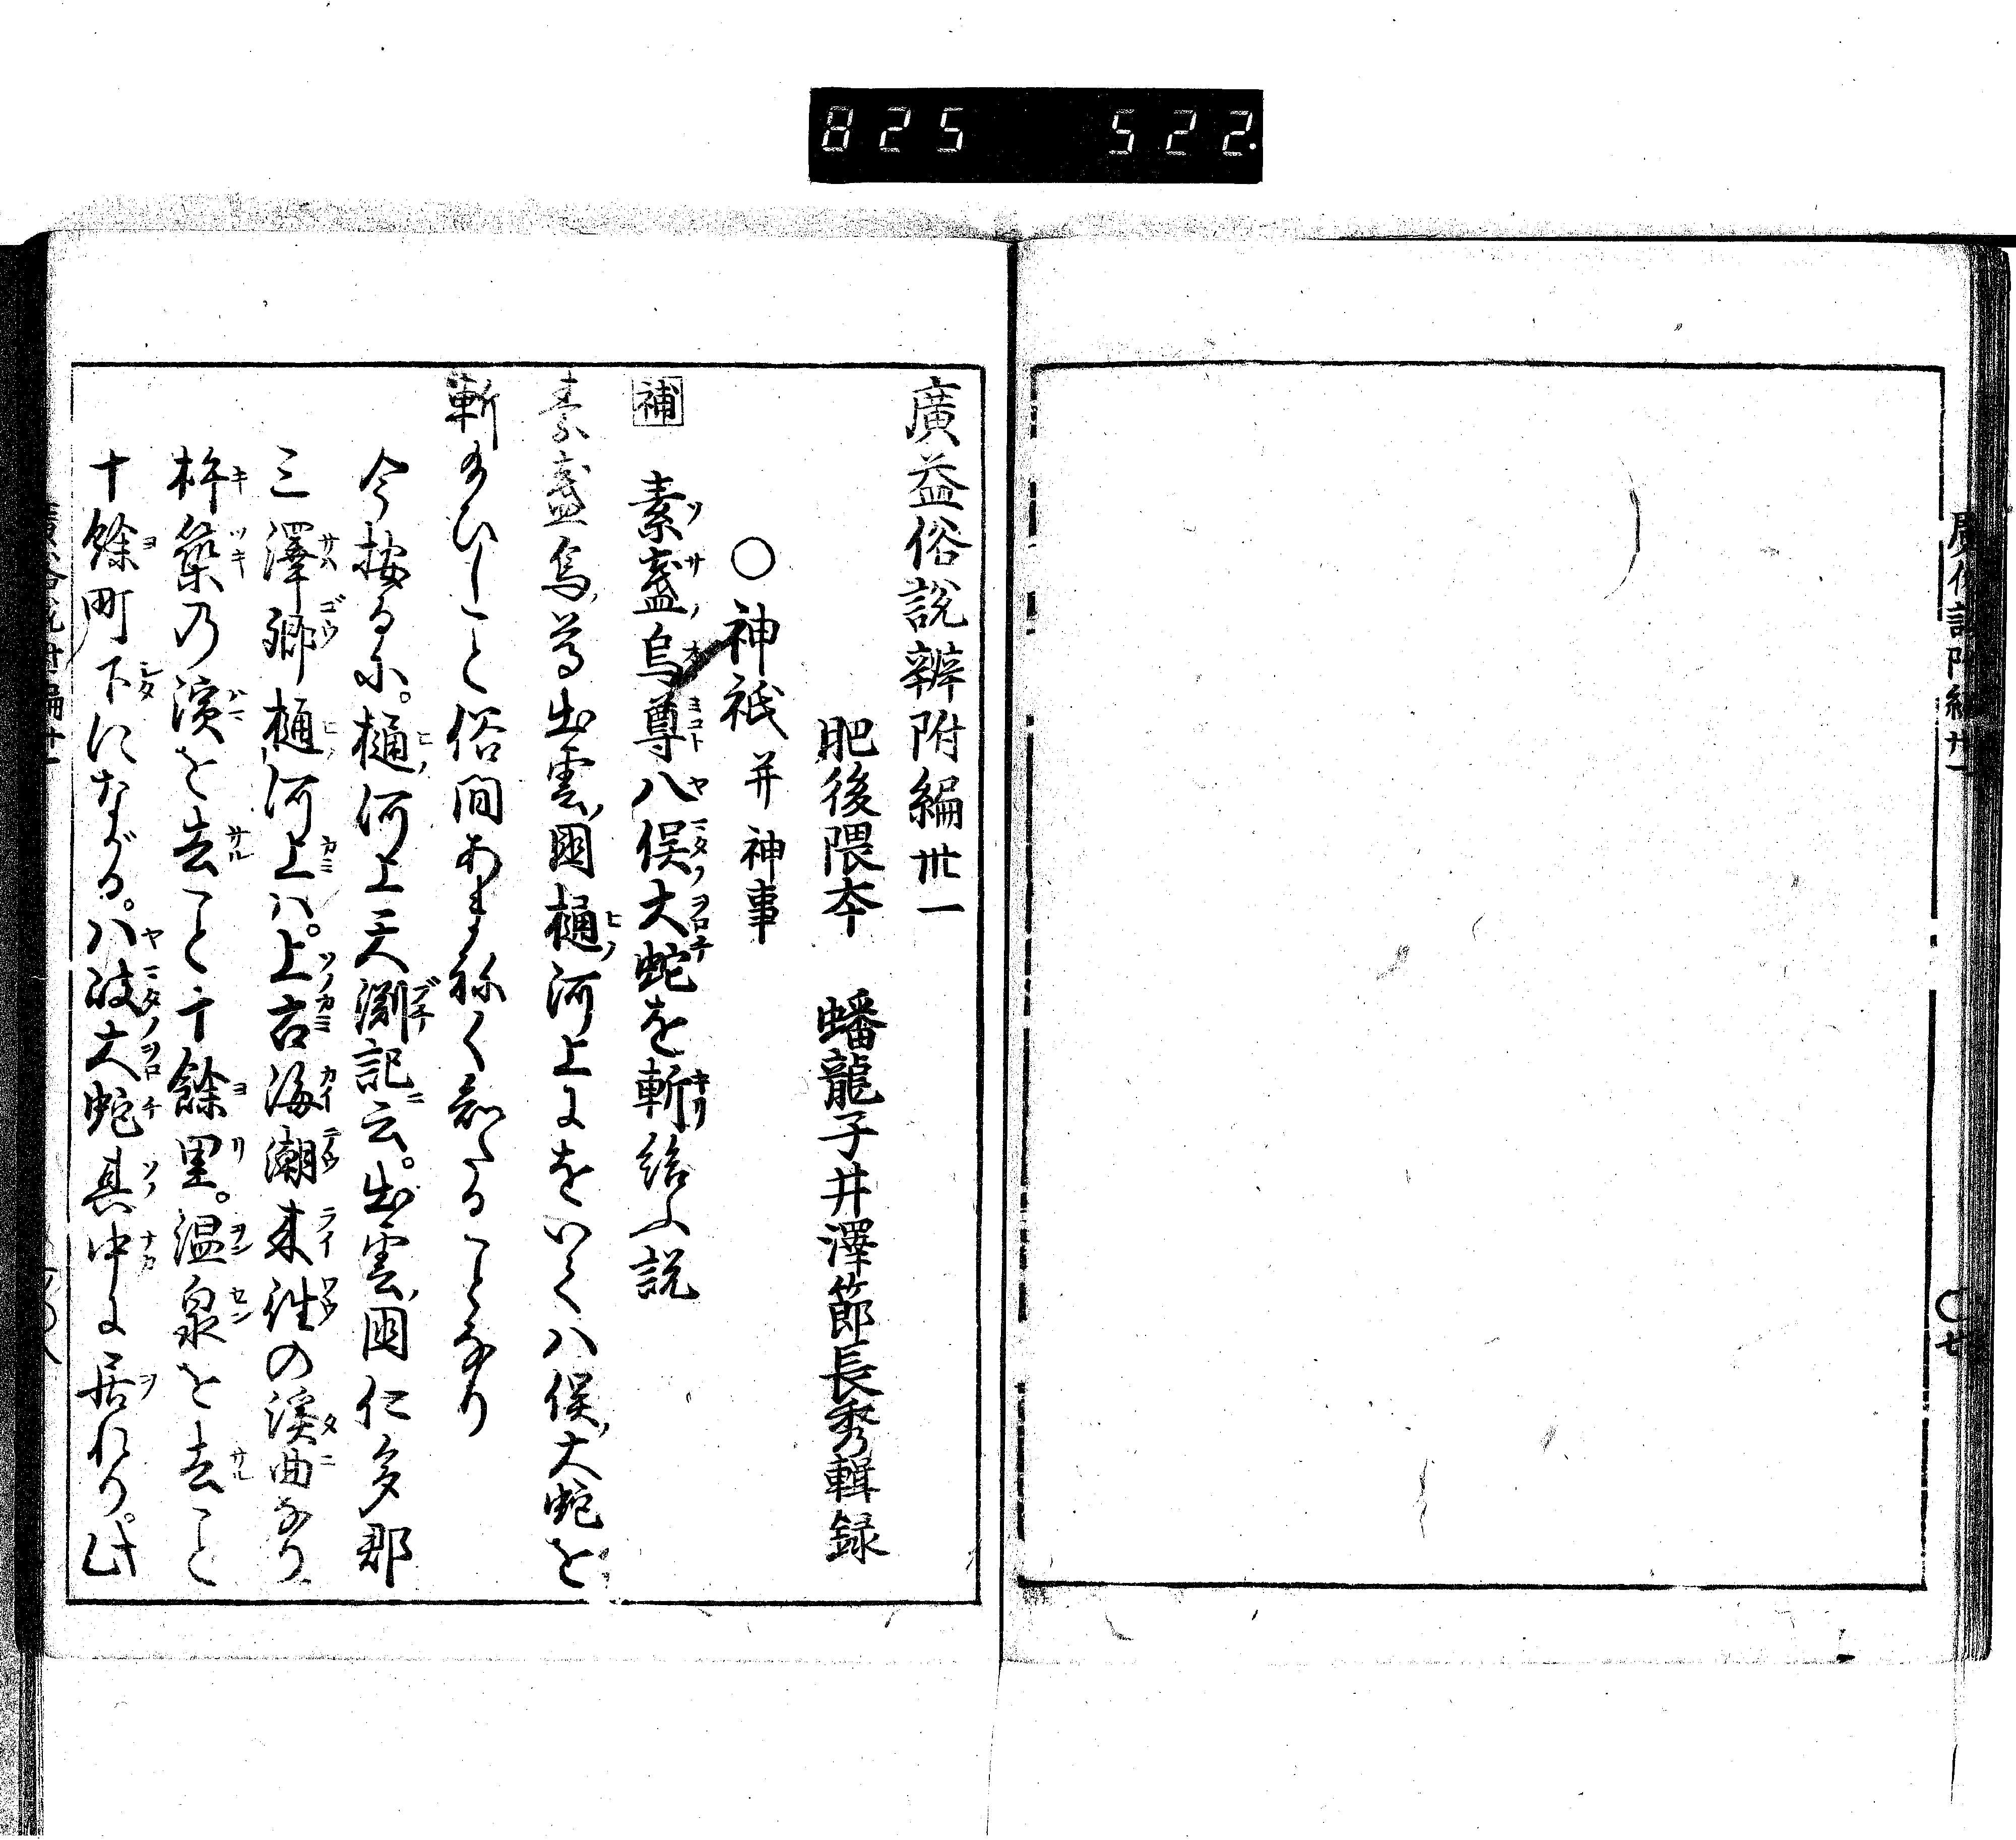 825 522
廣益俗説辨附編卅一
肥後隈本 蟠龍子井澤節長秀輯録
○神祇并神事
補 素盞烏尊八俣大蛇を斬給ふ説
素盞烏尊出雲國樋河上にをいて八俣大蛇を
斬給ひしこと俗間あまねく知たることなり
今按るに。樋河上天淵記云。出雲國仁多郡
三澤郷樋河上ハ。上古海潮来往の溪曲なり
杵築乃濱を去こと十餘里。温泉を去こと
十餘町下にながる。八岐大蛇其中に居れり。此